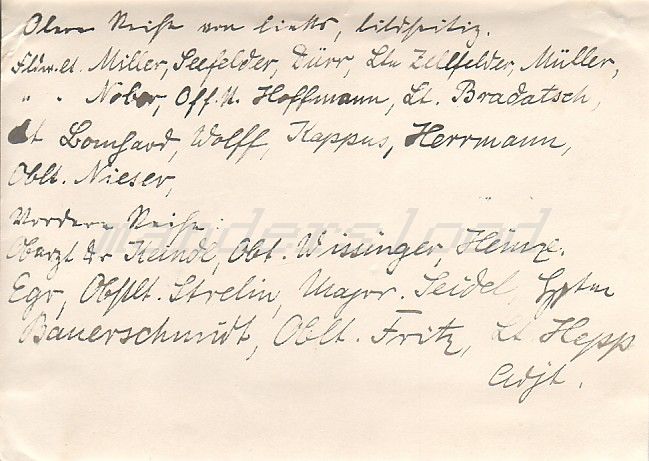 Obere Reihe von links, bildseitig.
Feldw. Lt. Miller, Seefelder, Dürr, Ltn Zellfelder, Müller,
" . Nober, Off. St. Hoffmann, Lt. Bradatsch,
Lt Bomhard, Wolff, Kappus, Herrmann,
Oblt. Nieser,
Vordere Reihe.
Oberarzt Dr Keinde, Obt. Wissinger, Heinze.
Egr, Obstlt. Strelin, Major. Seidel, Hptm
Bauerschmidt, Oblt. Fritz, Lt Hepp
Adjt.